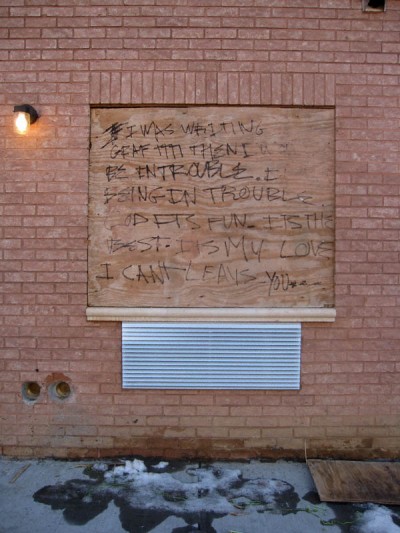 I WAS WRITING
THEN I
BE IN TROUBLE. I
BEING IN TROUBLE
ITS FUN. ITS THE
BEST. IS MY LOVE
I CANT LEAVS YOU